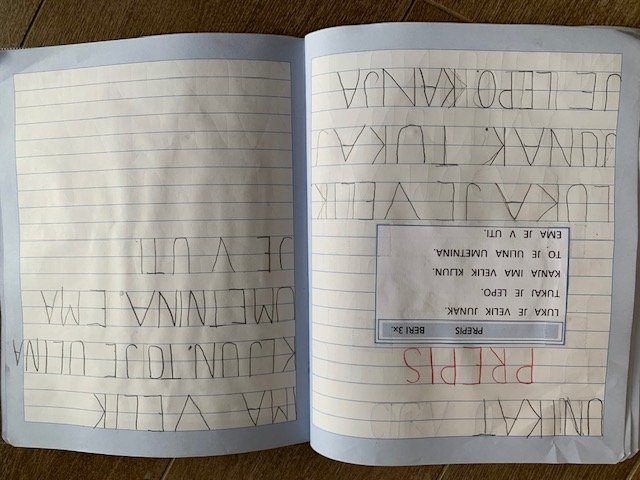 UNIKAT
PREPIS
PREPIS BERI 3x.
LUKA JE VELIK JUNAK.
TUKAJ JE LEPO.
KANJA IMA VELIK KLJUN.
TO JE ULINA UMETNINA.
EMA JE V UTI.
LUKA JE VELIK
JUNAK. TUKAJ
JE LEPO. KANJA
IMA VELIK
KLJUN. TO JE ULINA
UMETNINA. EMA
JE V UTI.